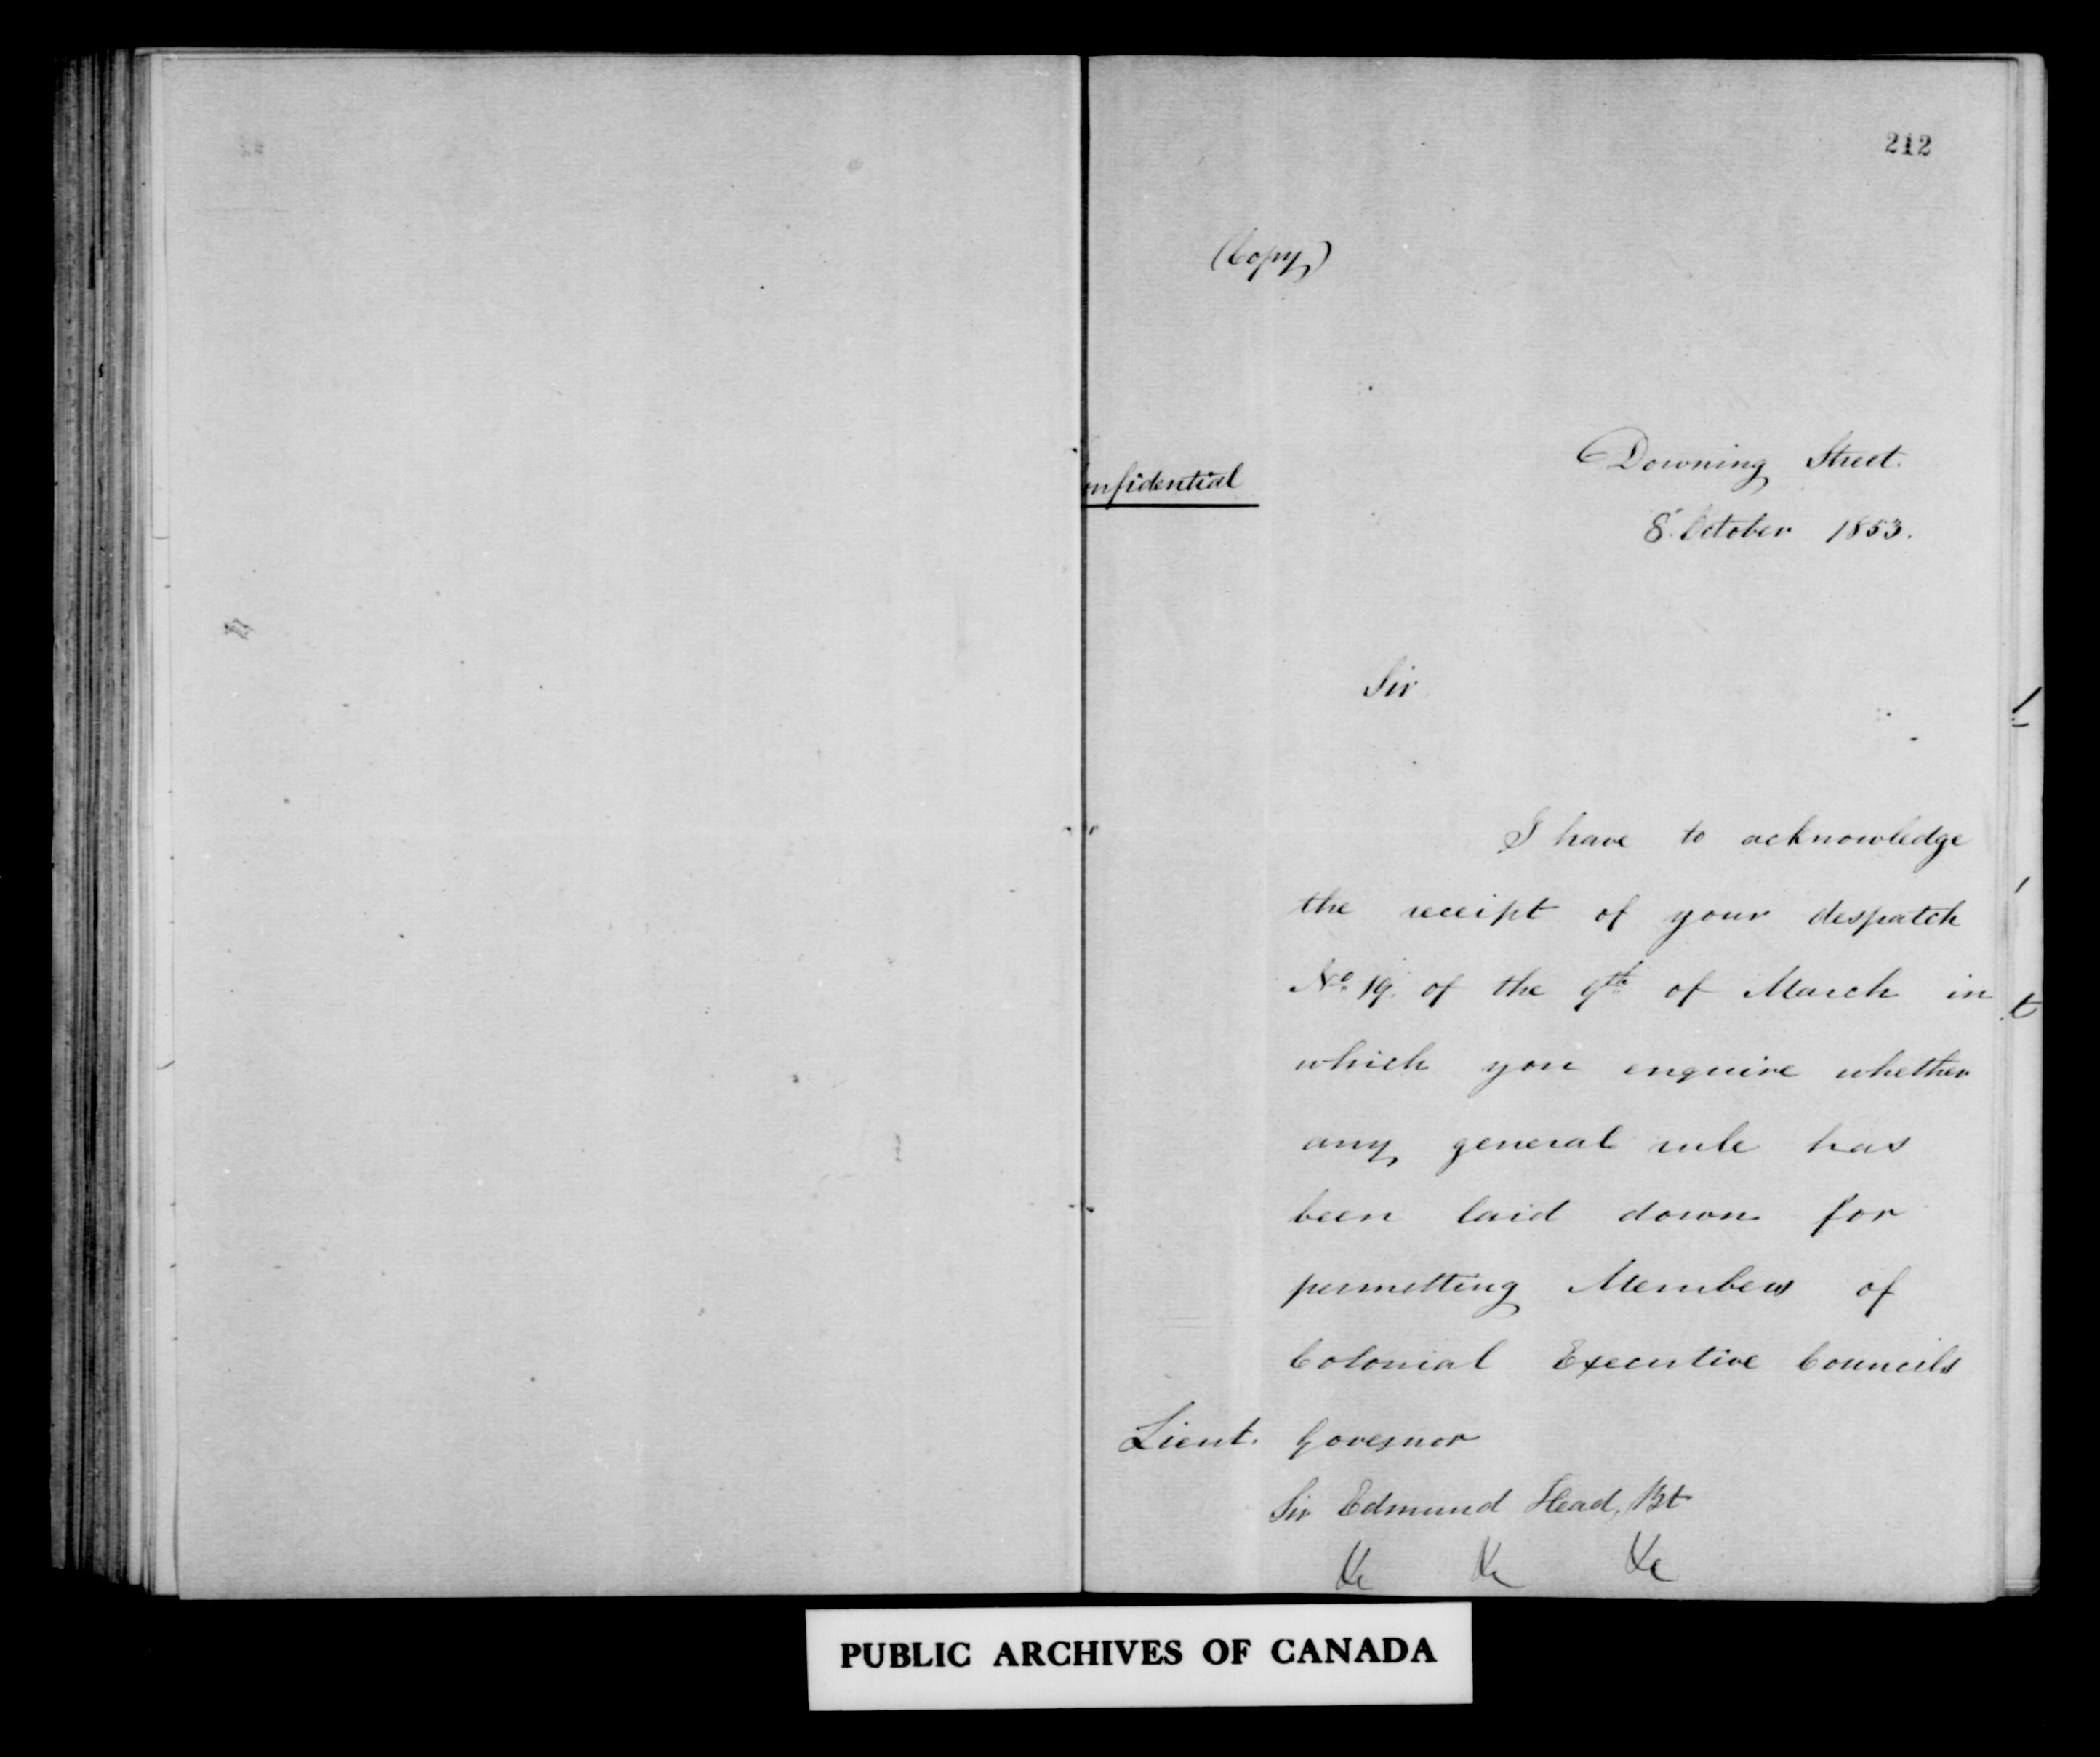 212
(Copy)
onfidential
Downing Street.
8. October 1853.
Sir
I have to acknowledge
the receipt of your despatch
No. 19. of the 9th of March in
which you enquire whether
any general rule has
been laid down for
permitting Members of
Colonial Executive Councils
Lieut. Governor
Sir Edmund Head, Bt
&c &c &c
PUBLIC ARCHIVES OF CANADA